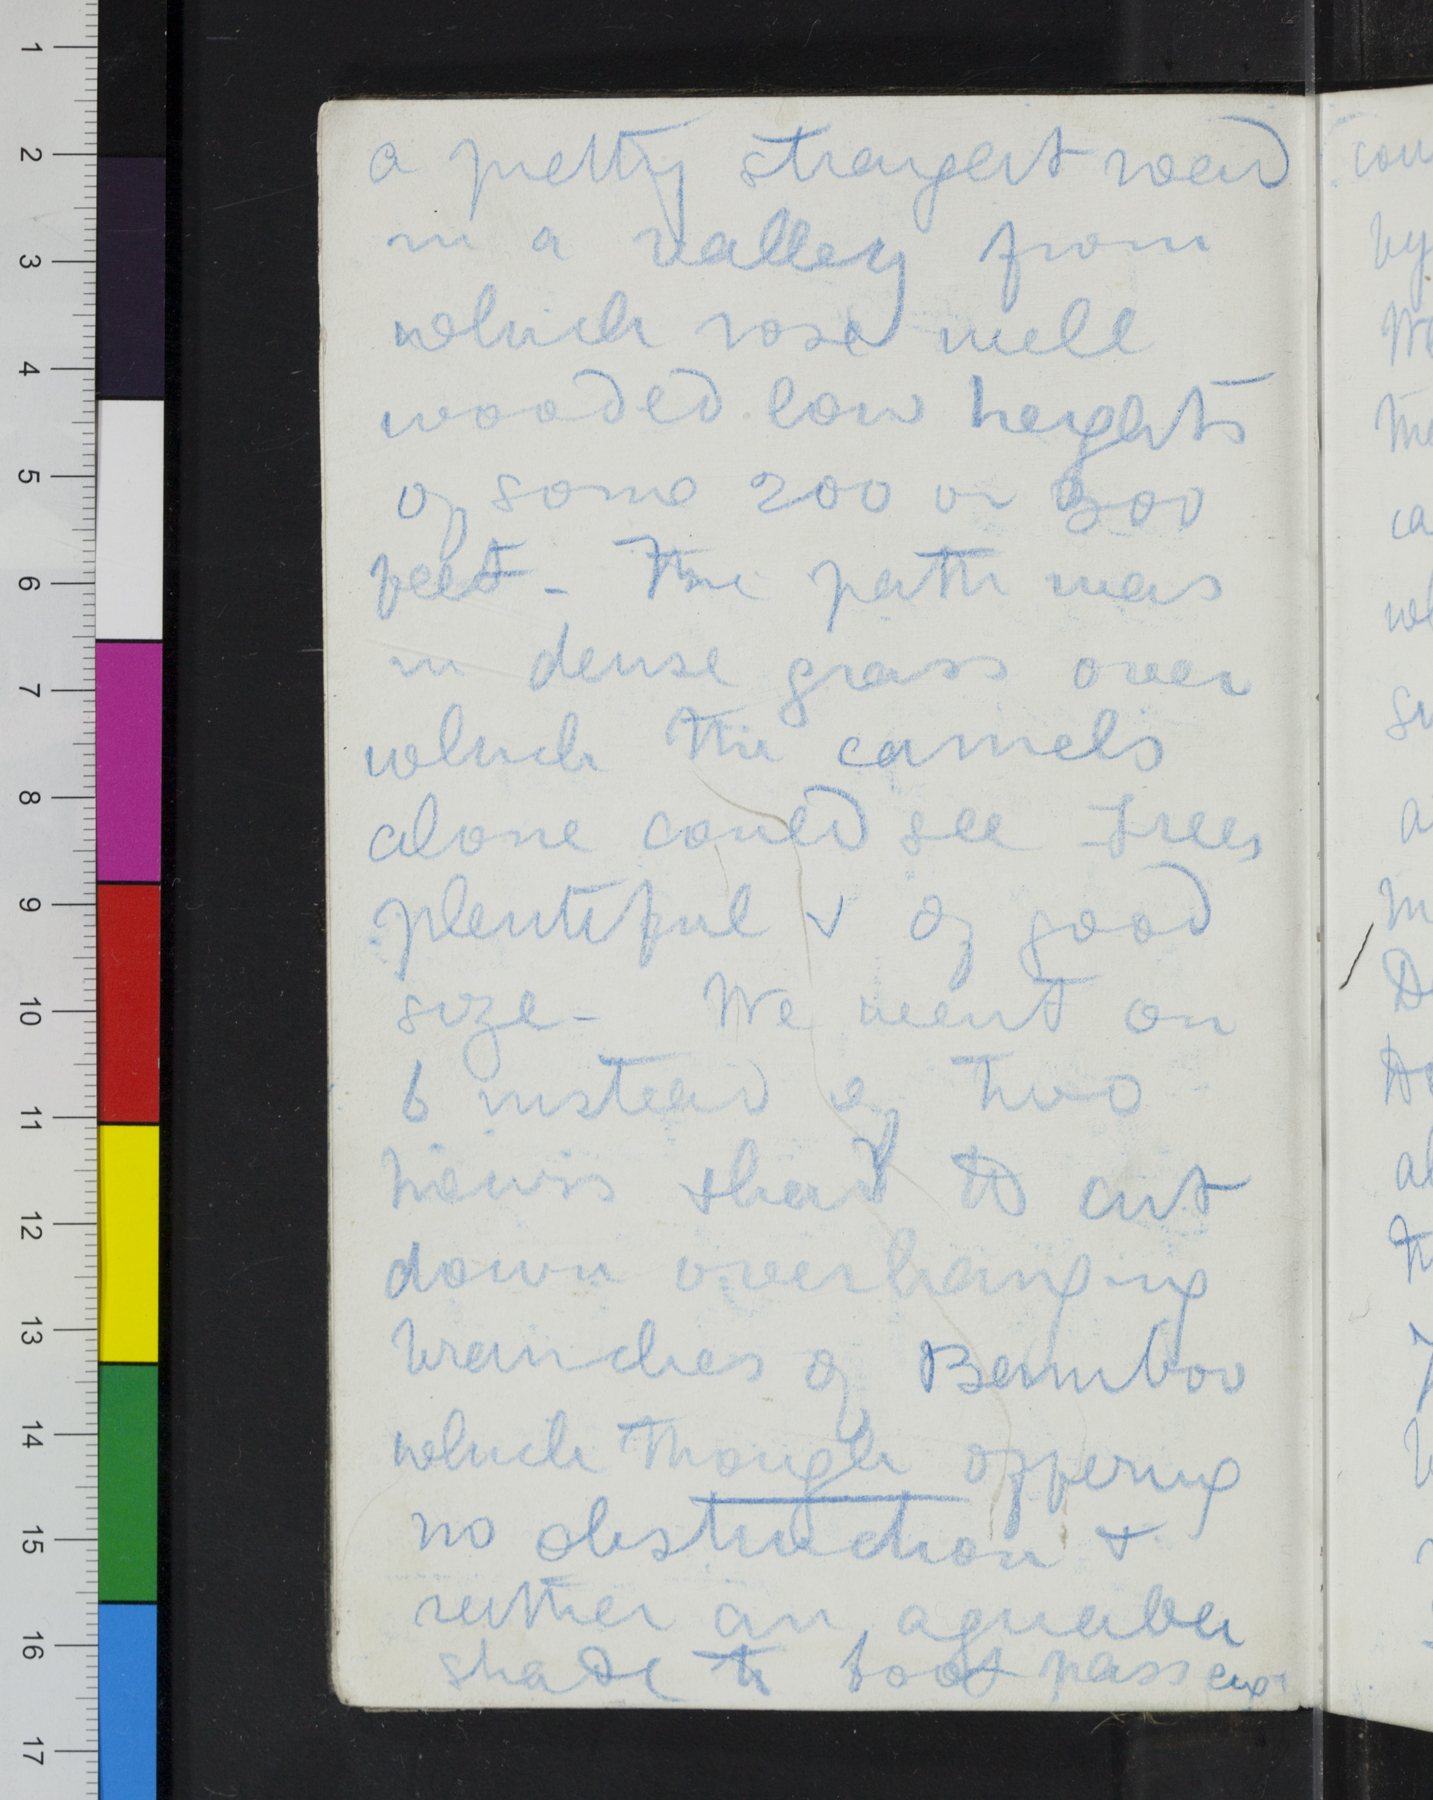 a pretty straight road
in a valley from
which rose well
wooded low heights
of some 200 or 300
feet - The path was
in dense grass over
which the camels
alone could see Trees
plentiful & of good
size - We went on
6 instead of two
hours & had to cut
down overhanging
branches of Bamboo
which though offering
no obstruction &
rather an agreeable
shade to foot passeng